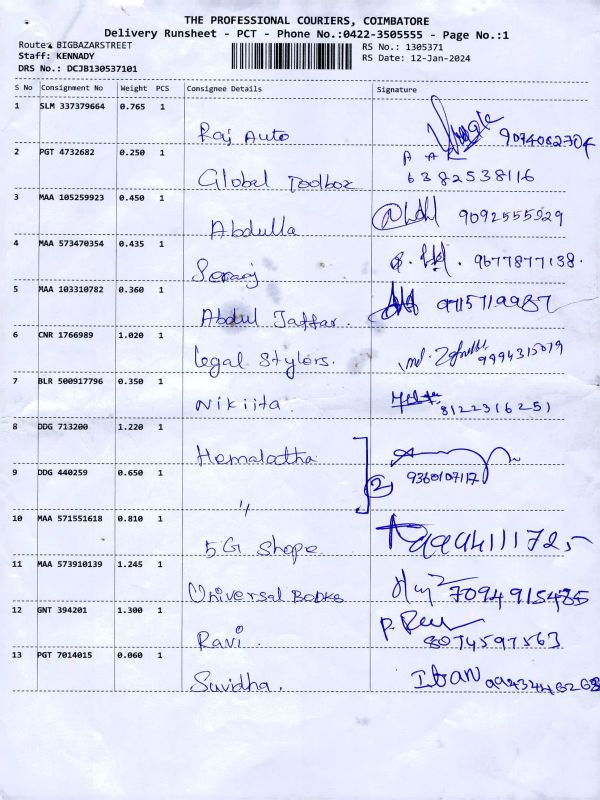 THE PROFESSIONAL COURIERS, COIMBATORE
Delivery Runsheet - PCT - Phone No.:0422-3505555 - Page No.:1
Route: BIGBAZARSTREET RS No.: 1305371
Staff: KENNADY RS Date: 12-Jan-2024
DRS No.: DCJB130537101
S No Consignment No Weight PCS Consignee Details Signature
1 SLM 337379664 0.765 1 Raj Auto
2 PGT 4732682 0.250 1 Global Toolboz 6382538116
3 MAA 105259923 0.450 1 Abdulla 9092555529
4 MAA 573470354 0.435 1 Seraj 9677877138.
5 MAA 103310782 0.360 1 Abdul Jaffar. 9715719987
6 CNR 1766989 1.020 1 Legal Stylers. 9994315079
7 BLR 500917796 0.350 1 Nikiita. 8122316251
8 DDG 713200 1.220 1 Hemalatha
9 DDG 440259 0.650 1 " 2 9360107117
10 MAA 571551618 0.810 1 5G Shope
11 MAA 573910139 1.245 1 Universal Books 7094915485
12 GNT 394201 1.300 1 Ravi. 8074597563
13 PGT 7014015 0.060 1 Suvidha.